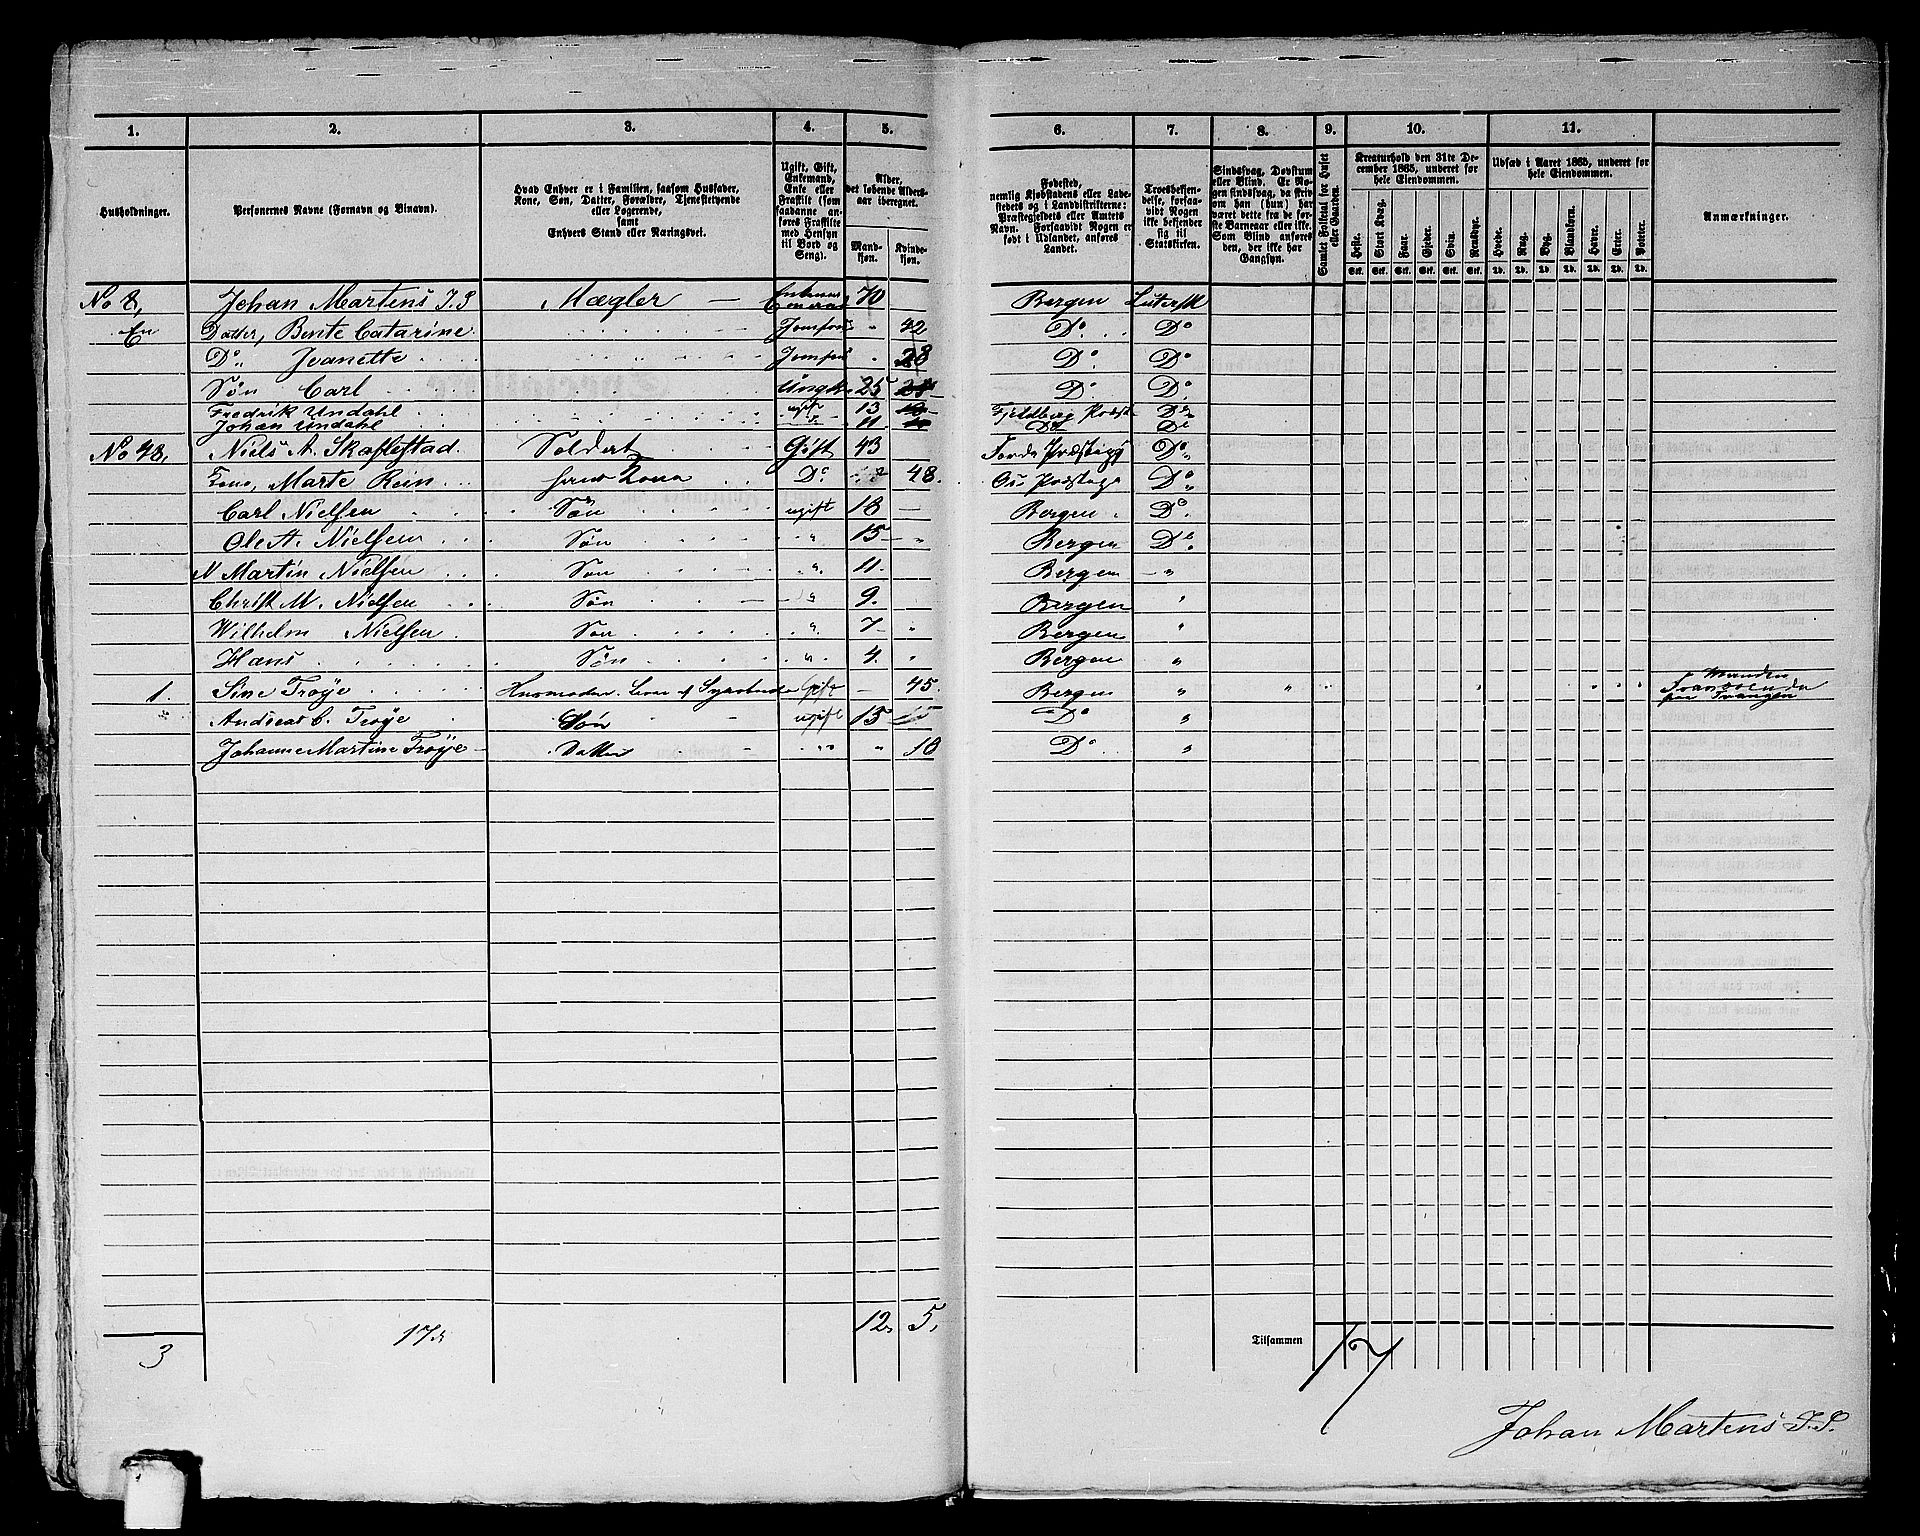 1. 2. 3. 4. 5. 6. 7. 8. 9. 10. 11.
Husholdninger.
Personernes Navne (Fornavn og Binavn).
Hvad Enhver er i Familien, saasom Husfader,
Kone, Søn, Datter, Forældre, Tjenestetyende
eller Logerende,
samt
Enhvers Stand eller Næringsvei.
Ugift, Gift,
Enkemand,
Enke eller
Fraskilt (som
saadanne an-
føres Fraskilte
med Hensyn
til Bord og
Seng).
Alder,
det løbende Alders-
aar iberegnet.
Mand-
kjøn.
Kvinde-
kjøn.
Fødested,
nemlig Kjøbstadens eller Lade-
stedets og i Landdistrikterne:
Præstegjeldets eller Amtets
Navn. Forsaavidt Nogen er
født i Udlandet, anføres
Landet.
Troesbekjen-
delse, forsaa-
vidt Nogen
ikke bekjender
sig til
Statskirken.
Sindssvag, Døvstum
eller Blind. Er No-
gen sindssvag, da skri-
ves om han (hun) har
været dette fra de før-
ste Barneaar eller ikke.
Som Blind anføres
den, der ikke har
Gangsyn.
Samlet Folketal for Huset
eller Gaarden.
Kreaturhold den 31te De-
cember 1865, underet for
hele Eiendommen.
Heste. Stort Kvæg. Faar. Gjeder. Svin. Rensdyr.
Stk. Stk. Stk. Stk. Stk. Stk.
Udsæd i Aaret 1865, underet for
hele Eiendommen.
Hvede. Rug. Byg. Blandkorn. Havre. Erter. Poteter.
Td. Td. Td. Td. Td. Td. Td.
Anmærkninger.
No 8, Johan Martens J.S Mægler — 70 Bergen Lutersk
En Datter, Bente Catarine Jomfru " 42 Do. Do
Do " Jeanette Jomfru . 28 Do. Do
Søn Carl Ungk. 25 Do Do.
Fredrik Undahl ugift 13 Fjeldberg Præst Do
Johan Undahl 11 Do Do
No 48, Niels A. Skaflestad Soldat Gift 43 Do
Kone, Marte Rein hans Kone Do 48. Os Præsteg Do
Carl Nielsen Søn ugift 18 — Bergen Do.
Ole A. Nielsen Søn " 15 " Bergen Do.
N Martin Nielsen Søn " 11. Bergen "
Christ M. Nielsen Søn " 9. Bergen "
Wilhelm Nielsen Søn " 7 " Bergen "
Hans Søn " 4. " Bergen "
1. Sine Trøye Husmoder Gift — 45. Bergen " " Manden
Andreas C. Trøye Søn ugift 15 Do "
Johanne Martine Trøye Datter " " 10 Do "
3 17 12 5, Tilsammen 17
Johan Martens J.S.